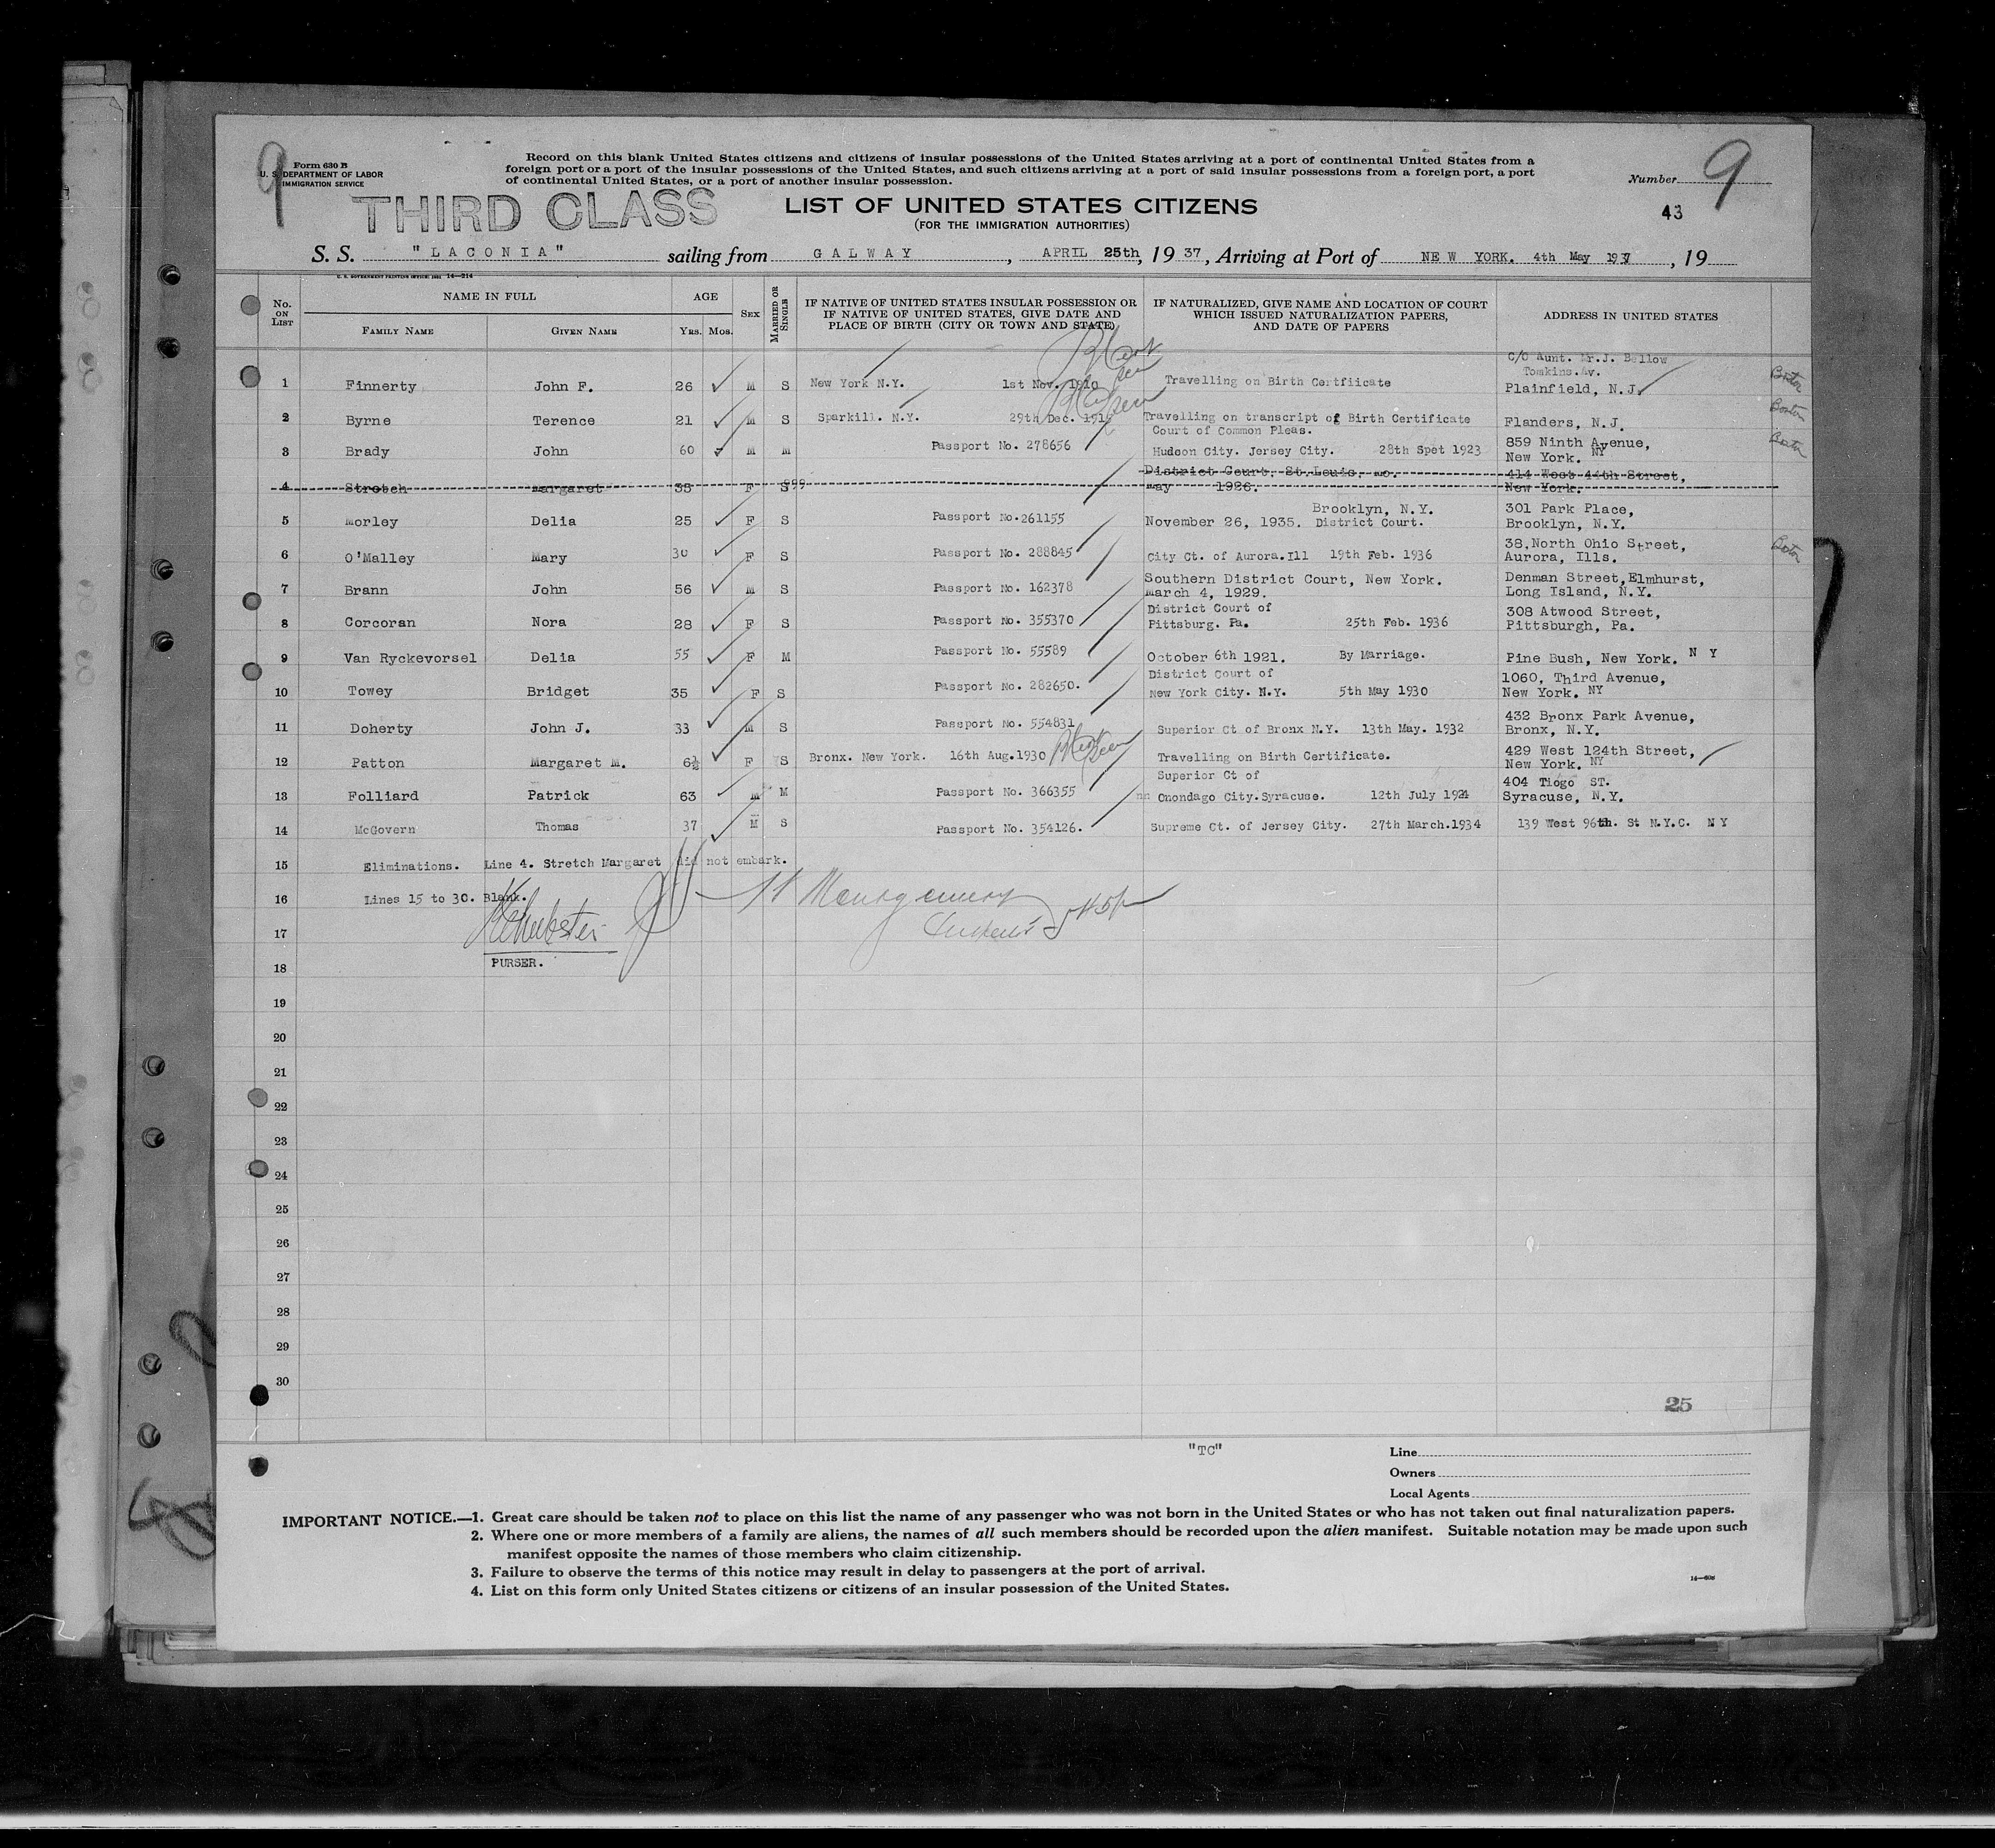 9
Form 630 B
U. S. DEPARTMENT OF LABOR
IMMIGRATION SERVICE
Record on this blank United States citizens and citizens of insular possessions of the United States arriving at a port of continental United States from a
foreign port or a port of the insular possessions of the United States, and such citizens arriving at a port of said insular possessions from a foreign port, a port
of continental United States, or a port of another insular possession.
Number 9
THIRD CLASS
LIST OF UNITED STATES CITIZENS
43
(FOR THE IMMIGRATION AUTHORITIES)
S. S. "LACONIA" sailing from GALWAY, APRIL 25th, 1937, Arriving at Port of NEW YORK. 4th May 1937, 19
U. S. GOVERNMENT PRINTING OFFICE: 1931 14—214
No. ON LIST NAME IN FULL AGE SEX MARRIED OR SINGLE IF NATIVE OF UNITED STATES INSULAR POSSESSION OR IF NATIVE OF UNITED STATES, GIVE DATE AND PLACE OF BIRTH (CITY OR TOWN AND STATE) IF NATURALIZED, GIVE NAME AND LOCATION OF COURT WHICH ISSUED NATURALIZATION PAPERS, AND DATE OF PAPERS ADDRESS IN UNITED STATES
FAMILY NAME GIVEN NAME YRS. MOS.
C/O Aunt. Mr.J. Bellow
Tomkins.Av.
1 Finnerty John F. 26 M S New York N.Y. 1st Nov. 1910 B Cert seen Travelling on Birth Certfiicate Plainfield, N.J. Boston
2 Byrne Terence 21 M S Sparkill. N.Y. 29th Dec. 191 B Cert seen Travelling on transcript of Birth Certificate Flanders, N.J. Boston
Court of Common Pleas.
3 Brady John 60 M M Passport No. 278656 Hudson City. Jersey City. 28th Spet 1923 859 Ninth Avenue, New York. NY Boston
4 Stretch Margaret 35 F S 999 District Court, St. Louis, Mo. May 1926. 414 West 44th Street, New York.
5 Morley Delia 25 F S Passport No.261155 Brooklyn, N.Y. November 26, 1935. District Court. 301 Park Place, Brooklyn, N.Y.
6 O'Malley Mary 30 F S Passport No. 288845 City Ct. of Aurora.Ill 19th Feb. 1936 38,North Ohio Street, Aurora, Ills. Boston
7 Brann John 56 M S Passport No. 162378 Southern District Court, New York. March 4, 1929. Denman Street,Elmhurst, Long Island, N.Y.
8 Corcoran Nora 28 F S Passport No. 355370 District Court of Pittsburg. Pa. 25th Feb. 1936 308 Atwood Street, Pittsburgh, Pa.
9 Van Ryckevorsel Delia 55 F M Passport No. 55589 October 6th 1921. By Marriage. Pine Bush, New York. N Y
10 Towey Bridget 35 F S Passport No. 282650. District Court of New York City. N.Y. 5th May 1930 1060, Third Avenue, New York. NY
11 Doherty John J. 33 M S Passport No. 554831 Superior Ct of Bronx N.Y. 13th May. 1932 432 Bronx Park Avenue, Bronx, N.Y.
12 Patton Margaret M. 6½ F S Bronx. New York. 16th Aug.1930 B Cert seen Travelling on Birth Certificate. 429 West 124th Street, New York. NY
13 Folliard Patrick 63 M M Passport No. 366355 Superior Ct of Onondago City.Syracuse. 12th July 1924 404 Tiogo ST. Syracuse, N.Y.
14 McGovern Thomas 37 M S Passport No. 354126. Supreme Ct. of Jersey City. 27th March.1934 139 West 96th. St N.Y.C. N Y
15 Eliminations. Line 4. Stretch Margaret did not embark.
16 Lines 15 to 30. Blank. Montgomery
17
PURSER.
18
19
20
21
22
23
24
25
26
27
28
29
30
25
"TC"
Line
Owners
Local Agents
IMPORTANT NOTICE.—1. Great care should be taken not to place on this list the name of any passenger who was not born in the United States or who has not taken out final naturalization papers.
2. Where one or more members of a family are aliens, the names of all such members should be recorded upon the alien manifest. Suitable notation may be made upon such
manifest opposite the names of those members who claim citizenship.
3. Failure to observe the terms of this notice may result in delay to passengers at the port of arrival.
4. List on this form only United States citizens or citizens of an insular possession of the United States.